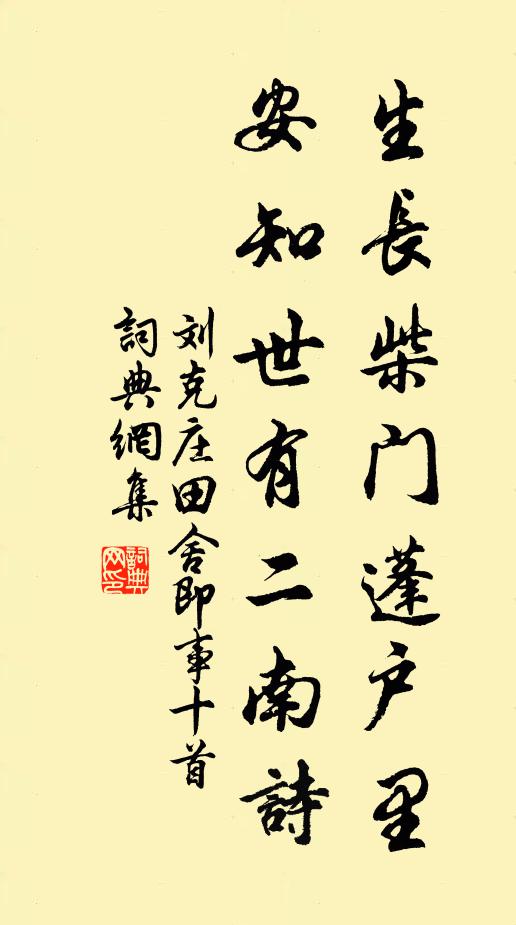 生長柴门蓬户里
安知世有二南詩
刘克庄田舍即事十首
詞典網集
詞典网印